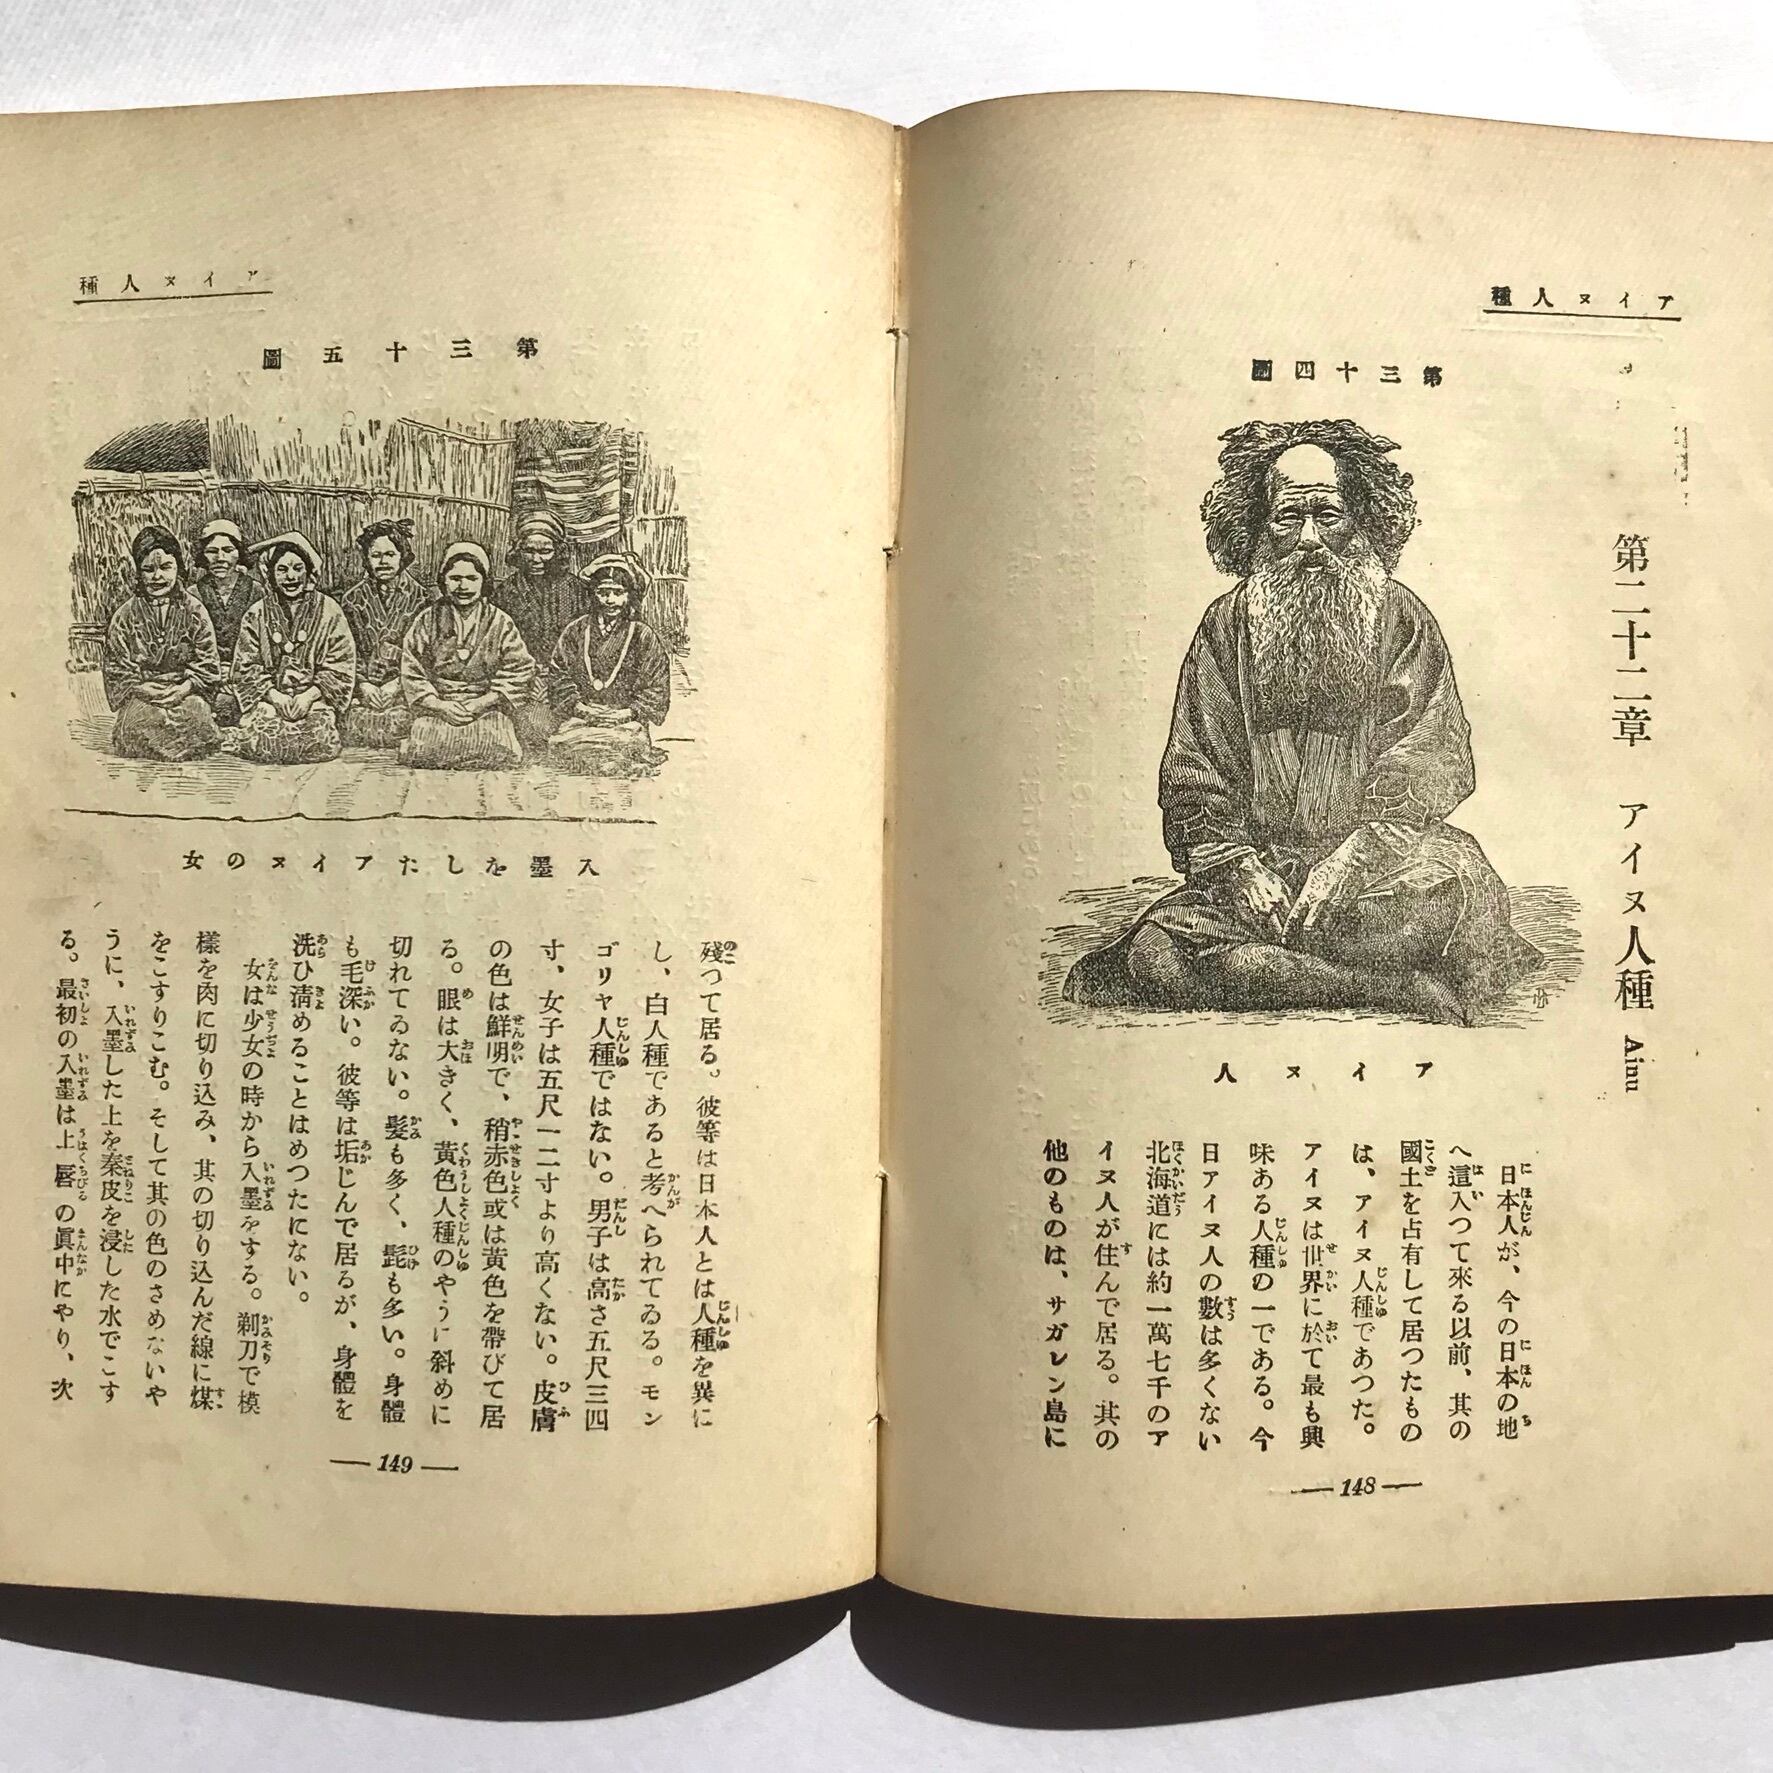 アイヌ人種
第三十四圖
第二十二章 アイヌ人種 Ainu
アイヌ人
日本人が、今の日本の地
へ這入つて來る以前、其の
國土を占有して居つたもの
は、アイヌ人種であつた。
アイヌは世界に於て最も興
味ある人種の一である。今
日アイヌ人の數は多くない
北海道には約一萬七千のア
イヌ人が住んで居る。其の
他のものは、サガレン島に
148
アイヌ人種
第三十五圖
入墨をしたアイヌの女
殘つて居る。彼等は日本人とは人種を異に
し、白人種であると考へられてゐる。モン
ゴリヤ人種ではない。男子は高さ五尺三四
寸、女子は五尺一二寸より高くない。皮膚
の色は鮮明で、稍赤色或は黄色を帶びて居
る。眼は大きく、黄色人種のやうに斜めに
切れてゐない。髮も多く、髭も多い。身體
も毛深い。彼等は垢じんで居るが、身體を
洗ひ淸めることはめつたにない。
女は少女の時から入墨をする。剃刀で模
樣を肉に切り込み、其の切り込んだ線に煤
をこすりこむ。そして其の色のさめないや
うに、入墨した上を秦皮を浸した水でこす
る。最初の入墨は上唇の眞中にやり、次
149